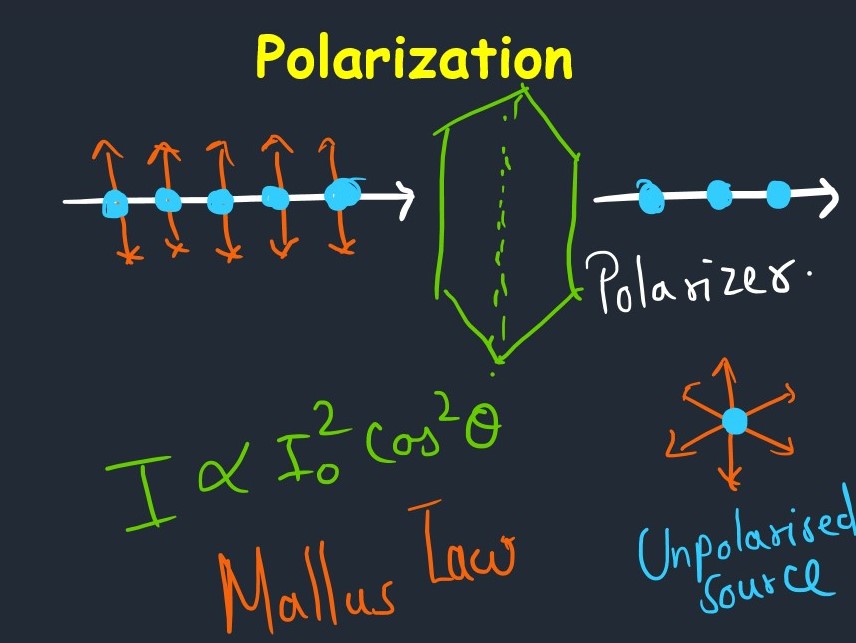 Polarization
Polarizer.
I ∝ I₀² Cos²θ
Mallus Law
Unpolarised
source